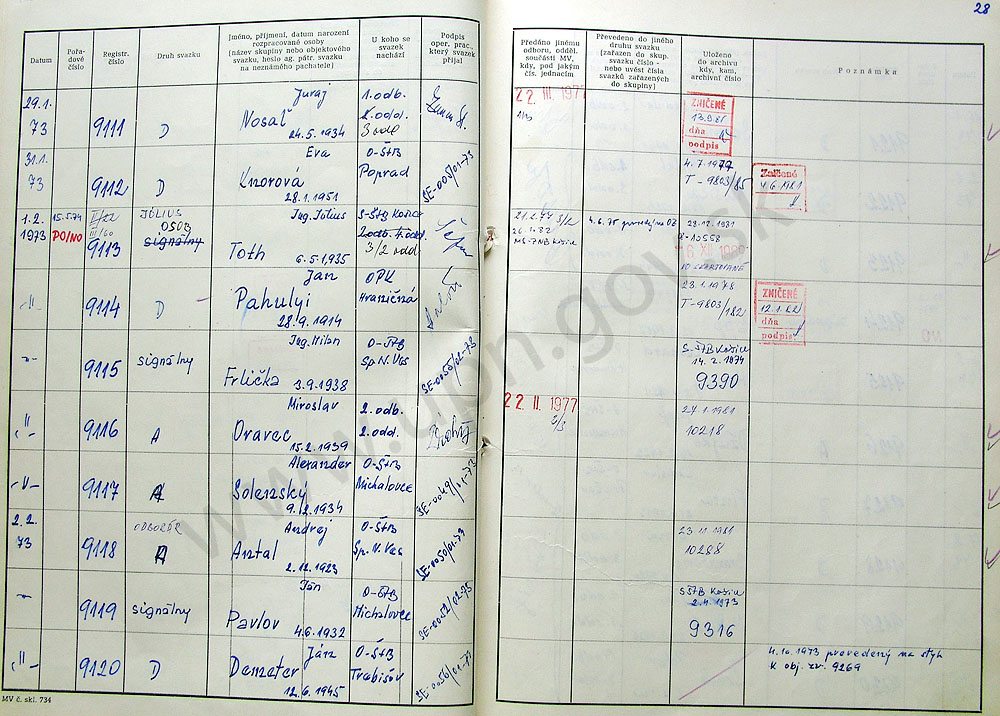 28
Datum
Pořa-
dové
číslo
Registr.
číslo
Druh svazku
Jméno, příjmení, datum narození
rozpracované osoby
(název skupiny nebo objektového
svazku, heslo ag. pátr. svazku
na neznámého pachatele)
U koho se
svazek
nachází
Podpis
oper. prac.,
který svazek
přijal
Předáno jinému
odboru, odděl.
součásti MV,
kdy, pod jakým
čís. jednacím
Převedeno do jiného
druhu svazku
(zařazen do skup.
svazku číslo -
nebo uvést čísla
svazků zařazených
do skupiny)
Uloženo
do archivu
kdy, kam,
archivní číslo
Poznámka
29.1.
73
9111
D
Juraj
Nosaľ
24.5.1934
1.odb.
2.odd.
3 odd
22 III. 1977
ZNIČENÉ
dňa
podpis
31.1.
73
9112
D
Eva
Knorová
28.1.1951
O-ŠtB
Poprad
SE-005/01-73
4.7.1977
T-9803/85
Zničené
4.6.1981
1.2.
1973
15.5.74
PO/NO
9113
JÚLIUS
OSOB
signálny
Ing. Július
Toth
6.5.1935
S-ŠtB Košice
2odb. 4.odd.
3/2 odd
26.1.82
4.6.75 provedený na OZ
28.12.1981
10558
-"-
9114
D
Ján
Pahulyi
28.9.1914
OPK
Hraničná
23.1.1978
T-9803/182
ZNIČENÉ
12.1.82
dňa
podpis
-"-
9115
signálny
Ing. Milan
Frlička
3.9.1938
O-ŠtB
Sp.N.Ves
SE-0050/02-73
S-ŠTB Košice
14.2.1974
9390
-"-
9116
A
Miroslav
Oravec
15.2.1939
2.odb.
2.odd.
22 II. 1977
2/3
27.1.1981
10218
-"-
9117
A
Alexander
Solenský
9.12.1934
O-ŠtB
Michalovce
SE-0049/01-73
2.2.
73
9118
ODBORÁR
A
Andrej
Antal
2.12.1923
O-ŠtB
Sp.N.Ves
SE-0050/01-73
23.11.1981
10288
-"-
9119
signálny
Ján
Pavlov
4.6.1932
O-ŠtB
Michalovce
SE-0052/02-75
SŠTB Košice
2.4.1973
9316
-"-
9120
D
Ján
Demeter
12.6.1945
O-ŠtB
Trebišov
SE-0056/01-73
4.10.1973 provedený na styk
K obj. zv. 9269
MV č. skl. 734
www.upn.gov.sk